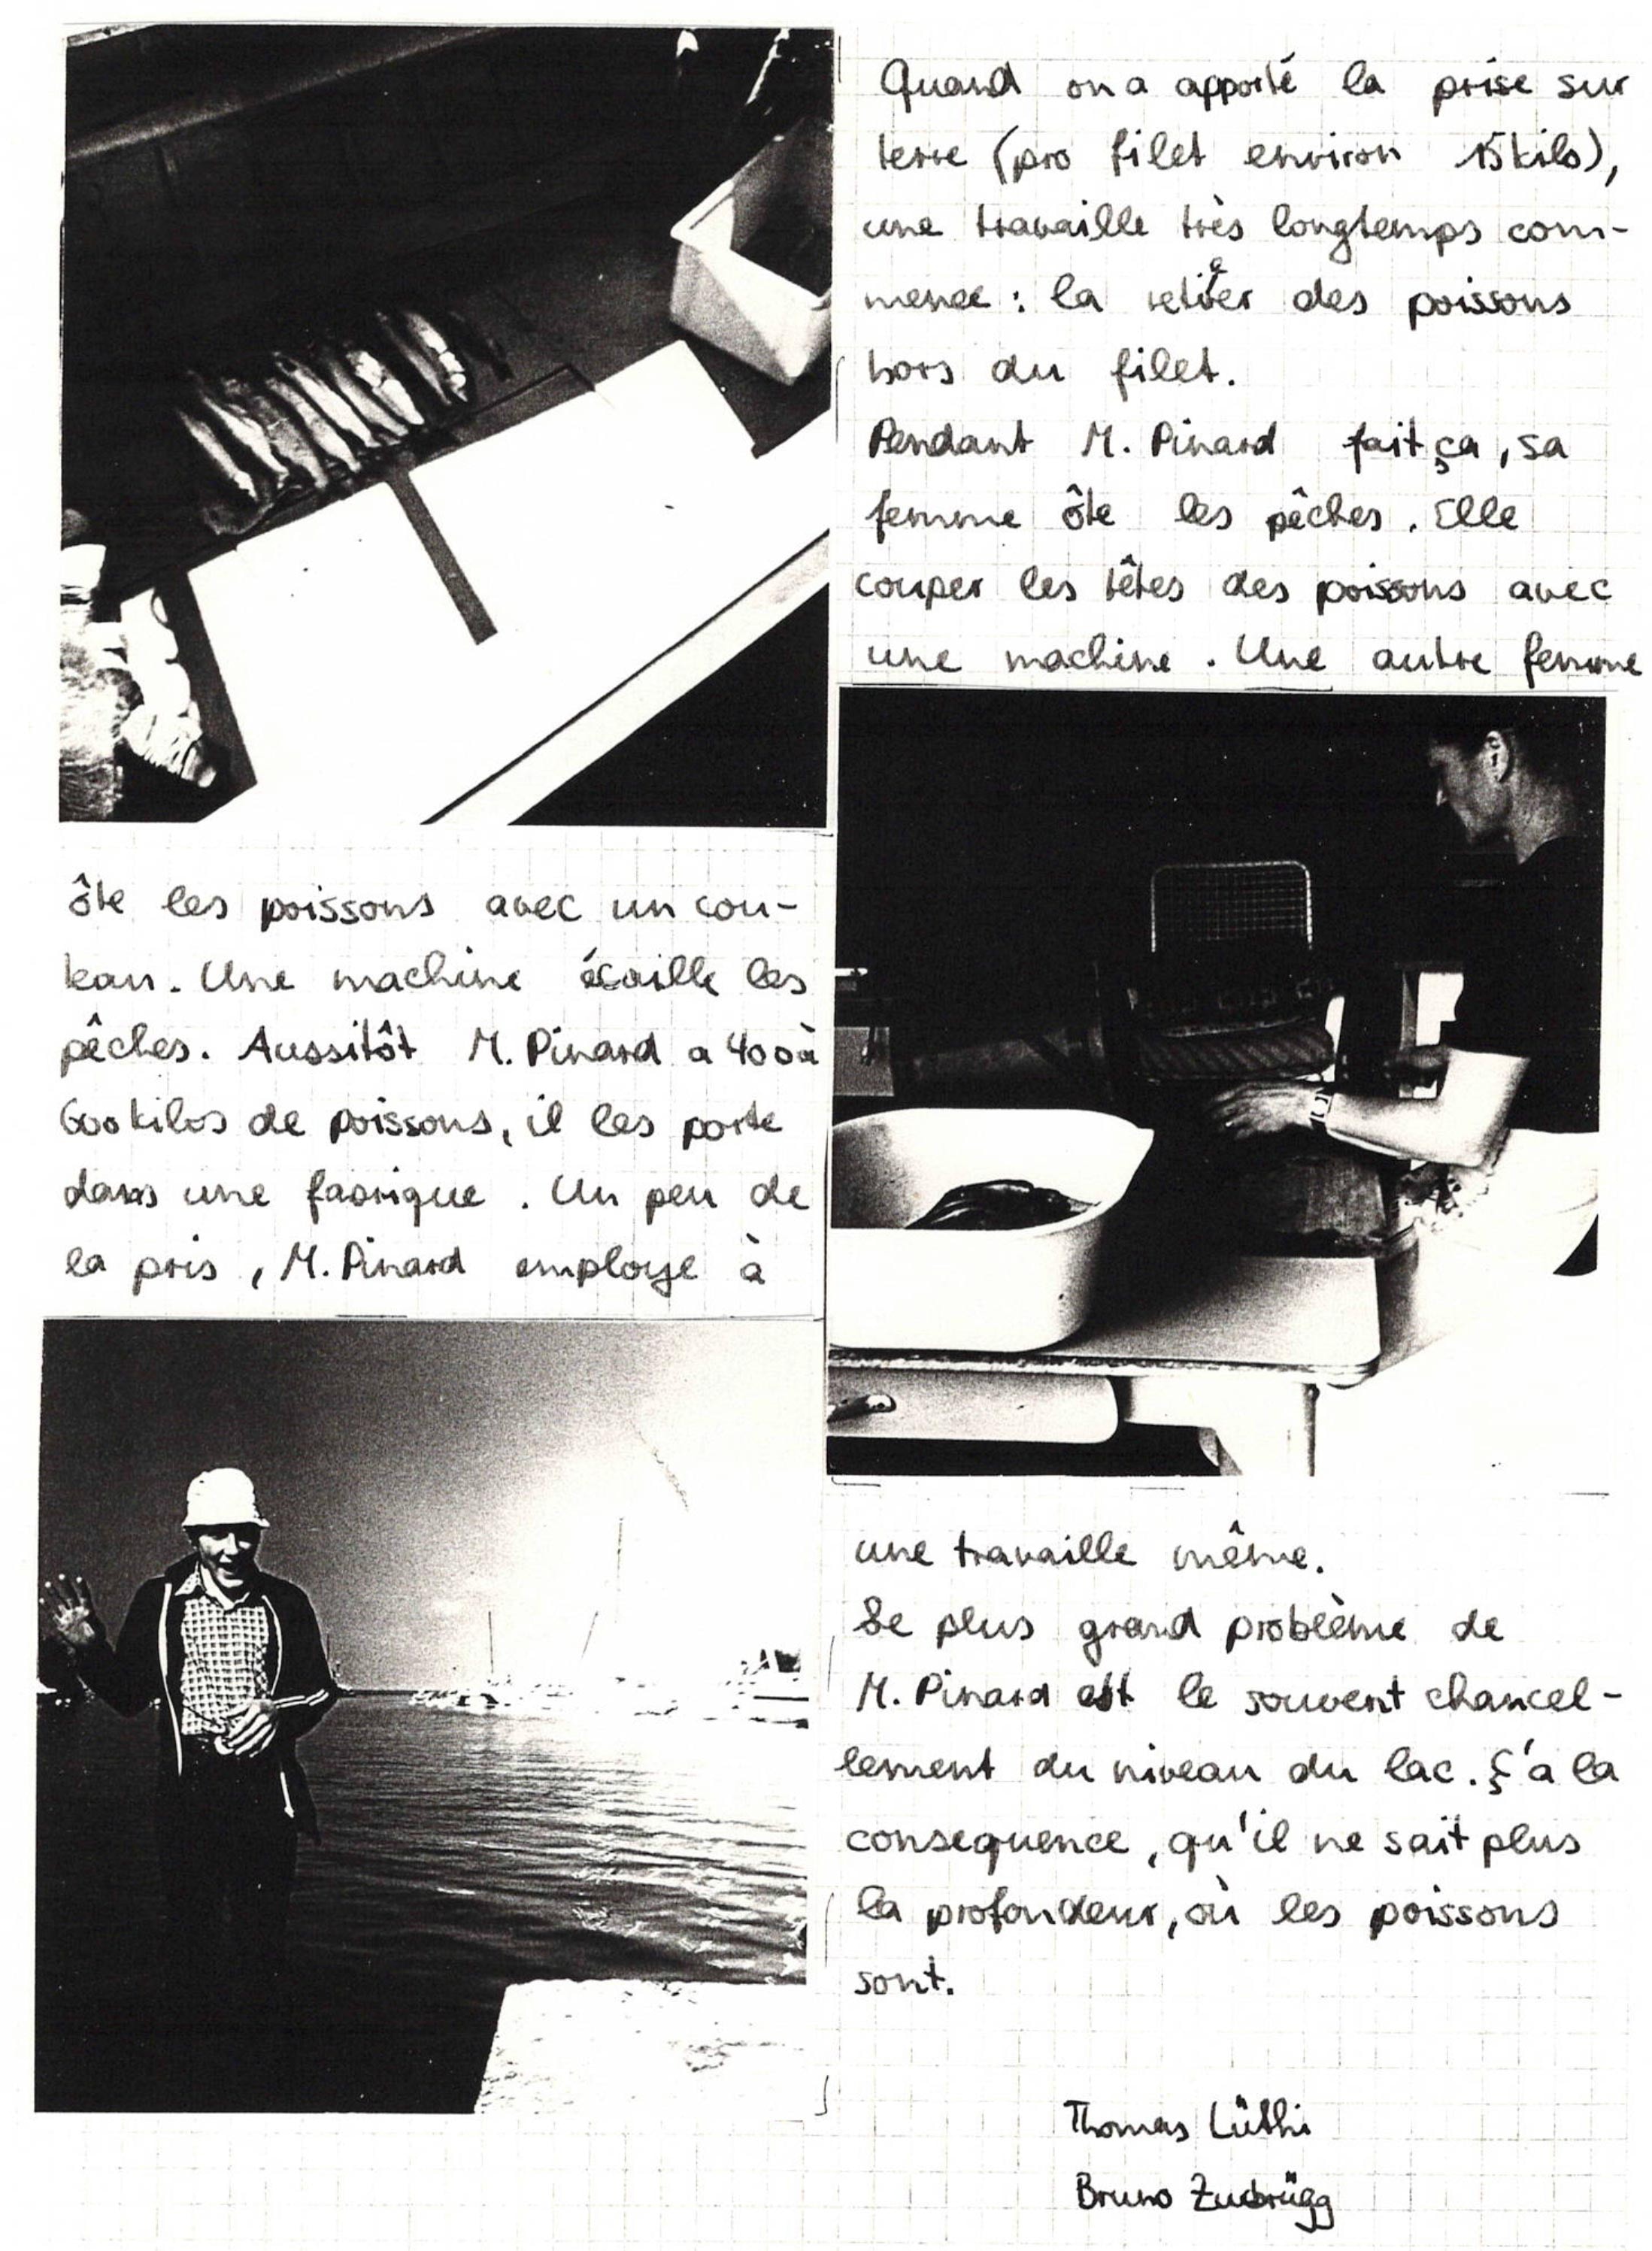 Quand on a apporté la prise sur
terre (pro filet environ 15 kilo),
une travaille très longtemps com-
mence : la retirer des poissons
hors du filet.
Pendant M. Pinard fait ça, sa
femme ôte les pêches. Elle
couper les têtes des poissons avec
une machine. Une autre femme
ôte les poissons avec un cou-
teau. Une machine écaille les
pêches. Aussitôt M. Pinard a 400 à
600 kilos de poissons, il les porte
dans une fabrique. Un peu de
la pris, M. Pinard employe à
une travaille même.
Le plus grand problème de
M. Pinard est le souvent chancel-
lement du niveau du lac. Ç'a la
consequence, qu'il ne sait plus
la profondeur, où les poissons
sont.
Thomas Lüthi
Bruno